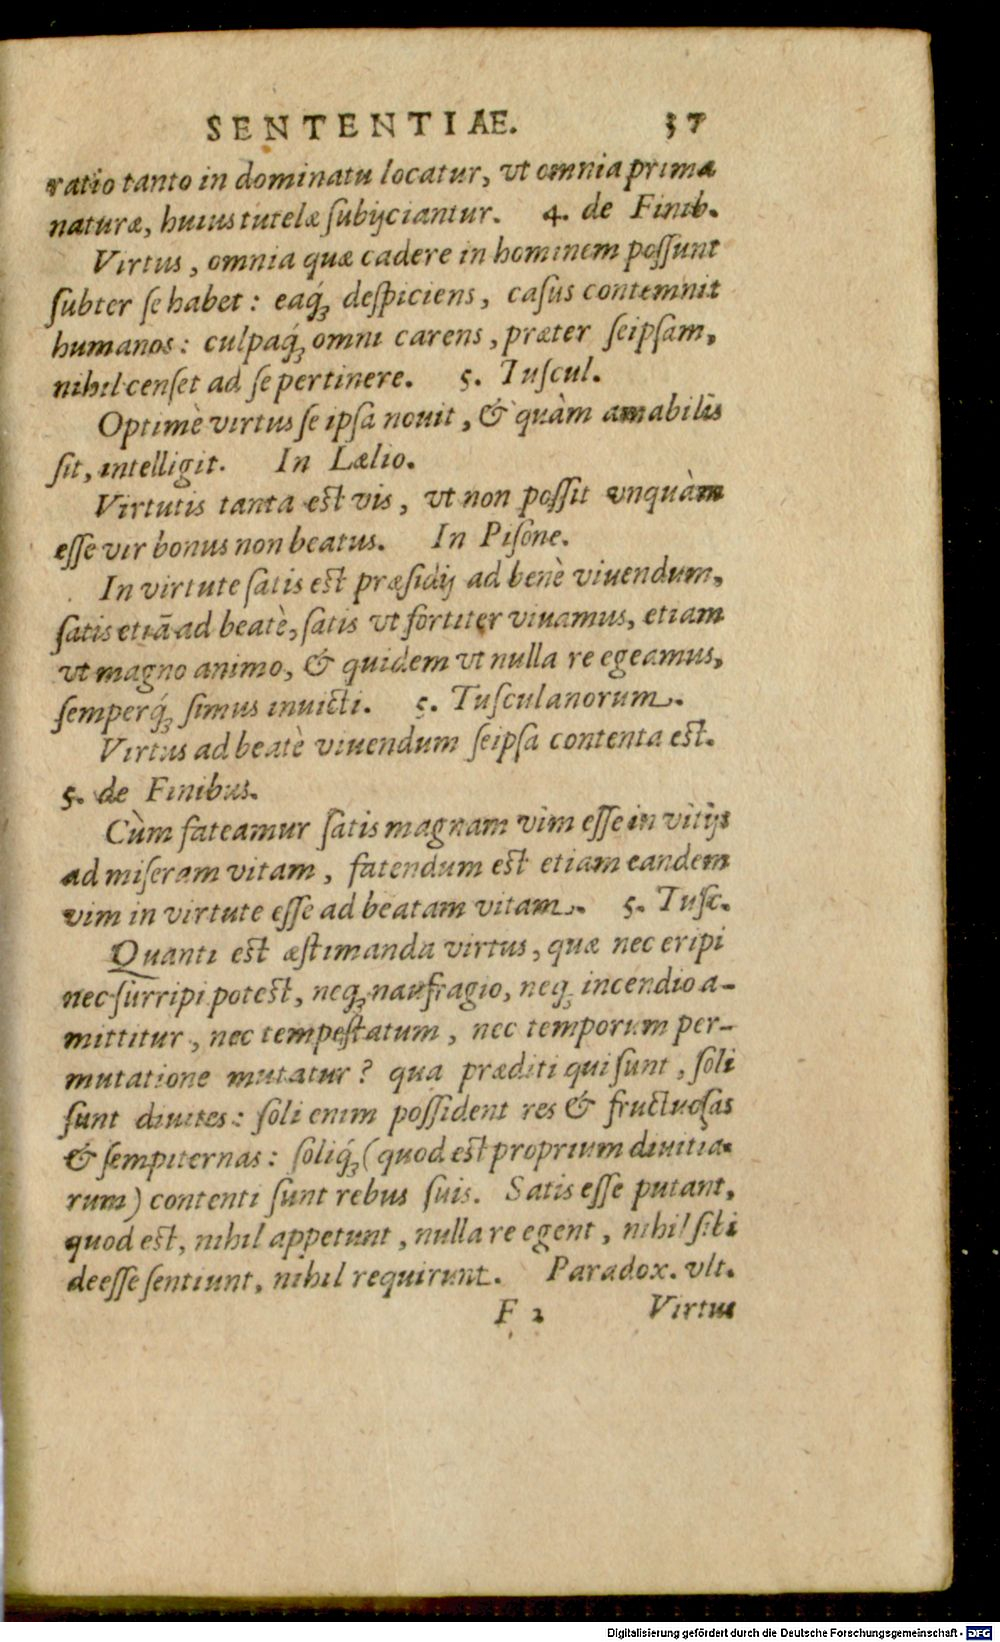 SENTENTIAE. 37
ratio tanto in dominatu locatur, vt omnia prima
naturæ, huius tutelæ ſubijciantur. 4. de Finib.
Virtus, omnia quæ cadere in hominem poſſunt
ſubter ſe habet: eaq́ꝫ deſpiciens, caſus contemnit
humanos: culpaq́ꝫ omni carens, præter ſeipſam,
nihil cenſet ad ſe pertinere. 5. Tuſcul.
Optimè virtus ſe ipſa nouit, & quàm amabilis
ſit, intelligit. In Lælio.
Virtutis tanta est vis, vt non poſſit vnquàm
eſſe vir bonus non beatus. In Piſone.
In virtute ſatis est præſidij ad benè viuendum,
ſatis etiā ad beatè, ſatis vt fortiter viuamus, etiam
vt magno animo, & quidem vt nulla re egeamus,
ſemperq́ꝫ ſimus inuicti. 5. Tuſculanorum.
Virtus ad beatè viuendum ſeipſa contenta est.
5. de Finibus.
Cùm fateamur ſatis magnam vim eſſe in vitijs
ad miſeram vitam, fatendum est etiam eandem
vim in virtute eſſe ad beatam vitam. 5. Tuſc.
Quanti est æſtimanda virtus, quæ nec eripi
nec ſurripi potest, neqꝫ naufragio, neqꝫ incendio a-
mittitur, nec tempeſtatum, nec temporum per-
mutatione mutatur? qua præditi qui ſunt, ſoli
ſunt diuites: ſoli enim poſſident res & fructuoſas
& ſempiternas: ſoliq́ꝫ (quod est proprium diuitia-
rum) contenti ſunt rebus ſuis. Satis eſſe putant,
quod est, nihil appetunt, nulla re egent, nihil ſibi
deeſſe ſentiunt, nihil requirunt. Paradox. vlt.
F 2 Virtus
Digitalisierung gefördert durch die Deutsche Forschungsgemeinschaft - DFG